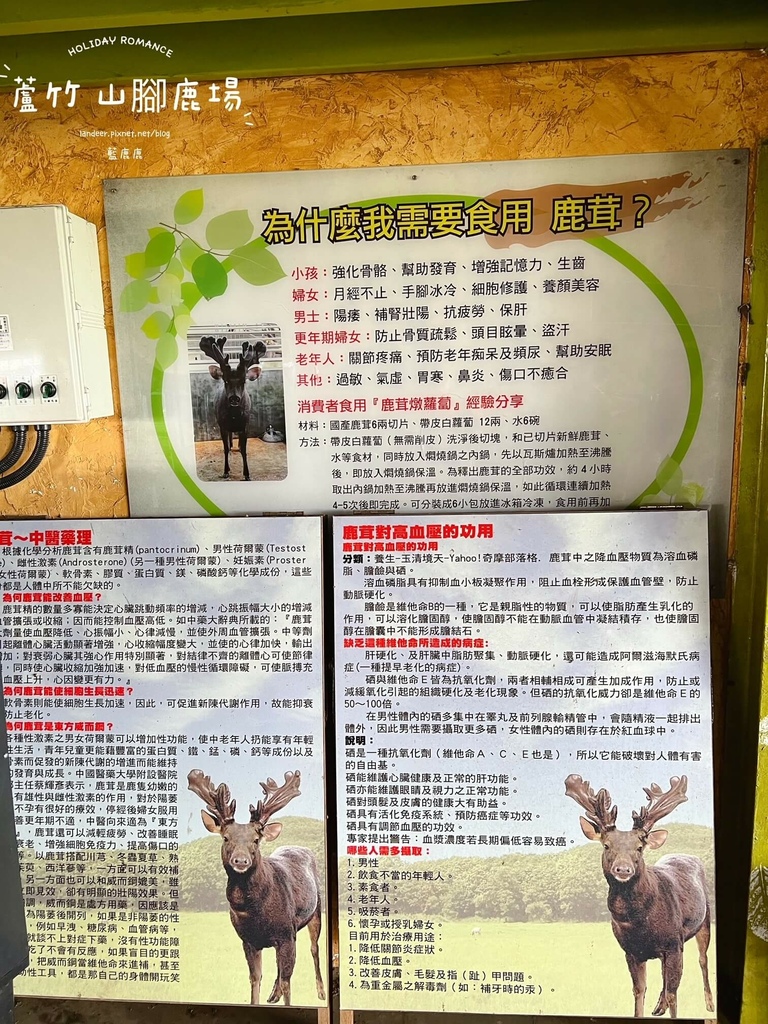 HOLIDAY ROMANCE
蘆竹 山腳鹿場
landeer.pixnet.net/blog
藍鹿鹿
為什麼我需要食用 鹿茸？
小孩：強化骨骼、幫助發育、增強記憶力、生齒
婦女：月經不止、手腳冰冷、細胞修護、養顏美容
男士：陽痿、補腎壯陽、抗疲勞、保肝
更年期婦女：防止骨質疏鬆、頭目眩暈、盜汗
老年人：關節疼痛、預防老年痴呆及頻尿、幫助安眠
其他：過敏、氣虛、胃寒、鼻炎、傷口不癒合
消費者食用『鹿茸燉蘿蔔』經驗分享
材料：國產鹿茸6兩切片、帶皮白蘿蔔 12兩、水6碗
方法：帶皮白蘿蔔（無需削皮）洗淨後切塊，和已切片新鮮鹿茸、
水等食材，同時放入燜燒鍋之內鍋，先以瓦斯爐加熱至沸騰
後，即放入燜燒鍋保溫。為釋出鹿茸的全部功效，約 4 小時
取出內鍋加熱至沸騰再放進燜燒鍋保溫，如此循環連續加熱
4-5次後即完成。可分裝成6小包放進冰箱冷凍，食用前再加
茸～中醫藥理
根據化學分析鹿茸含有鹿茸精(pantocrinum)、男性荷爾蒙(Testost
)、雌性激素(Androsterone)(另一種男性荷爾蒙)、妊娠素(Proster
女性荷爾蒙)、軟骨素、膠質、蛋白質、鎂、磷酸鈣等化學成份，這些
都是人體中所不能欠缺的。
為何鹿茸能改善血壓？
鹿茸精的數量多寡能決定心臟跳動頻率的增減，心跳振幅大小的增減
血管擴張或收縮；因而能控制血壓高低。如中藥大辭典所載的：『鹿茸
大劑量使血壓降低、心振幅小、心律減慢，並使外周血管擴張。中等劑
引起離體心臟活動顯著增強，心收縮幅度變大，並使的心律加快，輸出
增加；對衰弱心臟其強心作用特別顯著，對結律不齊的離體心可使節律
，同時使心臟收縮加強加速，對低血壓的慢性循環障礙，可使脈搏充
血壓上升，心因變更有力。』
為何鹿茸能使細胞生長迅速？
軟骨素則能使細胞生長加速，因此，可促進新陳代謝作用，故能抑衰
防止老化。
為何鹿茸是東方威而鋼？
各種性激素之男女荷爾蒙可以增加性功能，使中老年人扔能享有年輕
性生活，青年兒童更能藉豐富的蛋白質、鐵、錳、磷、鈣等成份以及
骨素而促發的新陳代謝的增進而能維持
的發育與成長。中國醫藥大學附設醫院
部主任蔡輝彥表示，鹿茸是鹿隻幼嫩的
有雄性與雌性激素的作用，對於陽萎
不孕有很好的療效，停經後婦女服用
善更年期不適，中醫向來適為『東方
』，鹿茸還可以減輕疲勞、改善睡眠
衰老、增強細胞免疫力、提高傷口的
等。以鹿茸搭配川芎、冬蟲夏草、熟
茱萸、西洋蔘等，一方面可以有效補
另一方面也可以和威而鋼媲美，雖
立即見效，卻有明顯的壯陽效果。但
調，威而鋼是處方用藥，因應該是
為陽萎後開列，如果是非陽萎的性
，例如早洩、糖尿病、血管病等，
就談不上對症下藥，沒有性功能障
吃了不會有反應，如果盲目的更跟
把威而鋼當維他命來進補，甚至
力性工具，都是那自己的身體開玩笑
鹿茸對高血壓的功用
鹿茸對高血壓的功用
分類：養生-玉清境天-Yahoo!奇摩部落格. 鹿茸中之降血壓物質為溶血磷
脂、膽鹼與硒。
溶血磷脂具有抑制血小板凝聚作用，阻止血栓形成保護血管壁，防止
動脈硬化。
膽鹼是維他命B的一種，它是親脂性的物質，可以使脂肪產生乳化的
作用，可以溶化膽固醇，使膽固醇不能在動脈血管中凝結積存，也使膽固
醇在膽囊中不能形成膽結石。
缺乏這種維他命所造成的病症：
肝硬化、及肝臟中脂肪聚集、動脈硬化，還可能造成阿爾滋海默氏病
症(一種提早老化的病症)。
硒與維他命Ｅ皆為抗氧化劑，兩者相輔相成可產生加成作用，防止或
減緩氧化引起的組織硬化及老化現象。但硒的抗氧化威力卻是維他命Ｅ的
50～100倍。
在男性體內的硒多集中在睪丸及前列腺輸精管中，會隨精液一起排出
體外，因此男性需要攝取更多硒，女性體內的硒則存在於紅血球中。
說明：
硒是一種抗氧化劑（維他命Ａ、Ｃ、Ｅ也是），所以它能破壞對人體有害
的自由基。
硒能維護心臟健康及正常的肝功能。
硒亦能維護眼睛及視力之正常功能。
硒對頭髮及皮膚的健康大有助益。
硒具有活化免疫系統、預防癌症等功效。
硒具有調節血壓的功效。
專家提出警告：血漿濃度若長期偏低容易致癌。
哪些人需多攝取：
1. 男性
2. 飲食不當的年輕人。
3. 素食者。
4. 老年人。
5. 吸菸者。
6. 懷孕或授乳婦女。
目前用於治療用途：
1. 降低關節炎症狀。
2. 降低血壓。
3. 改善皮膚、毛髮及指（趾）甲問題。
4. 為重金屬之解毒劑（如：補牙時的汞）。